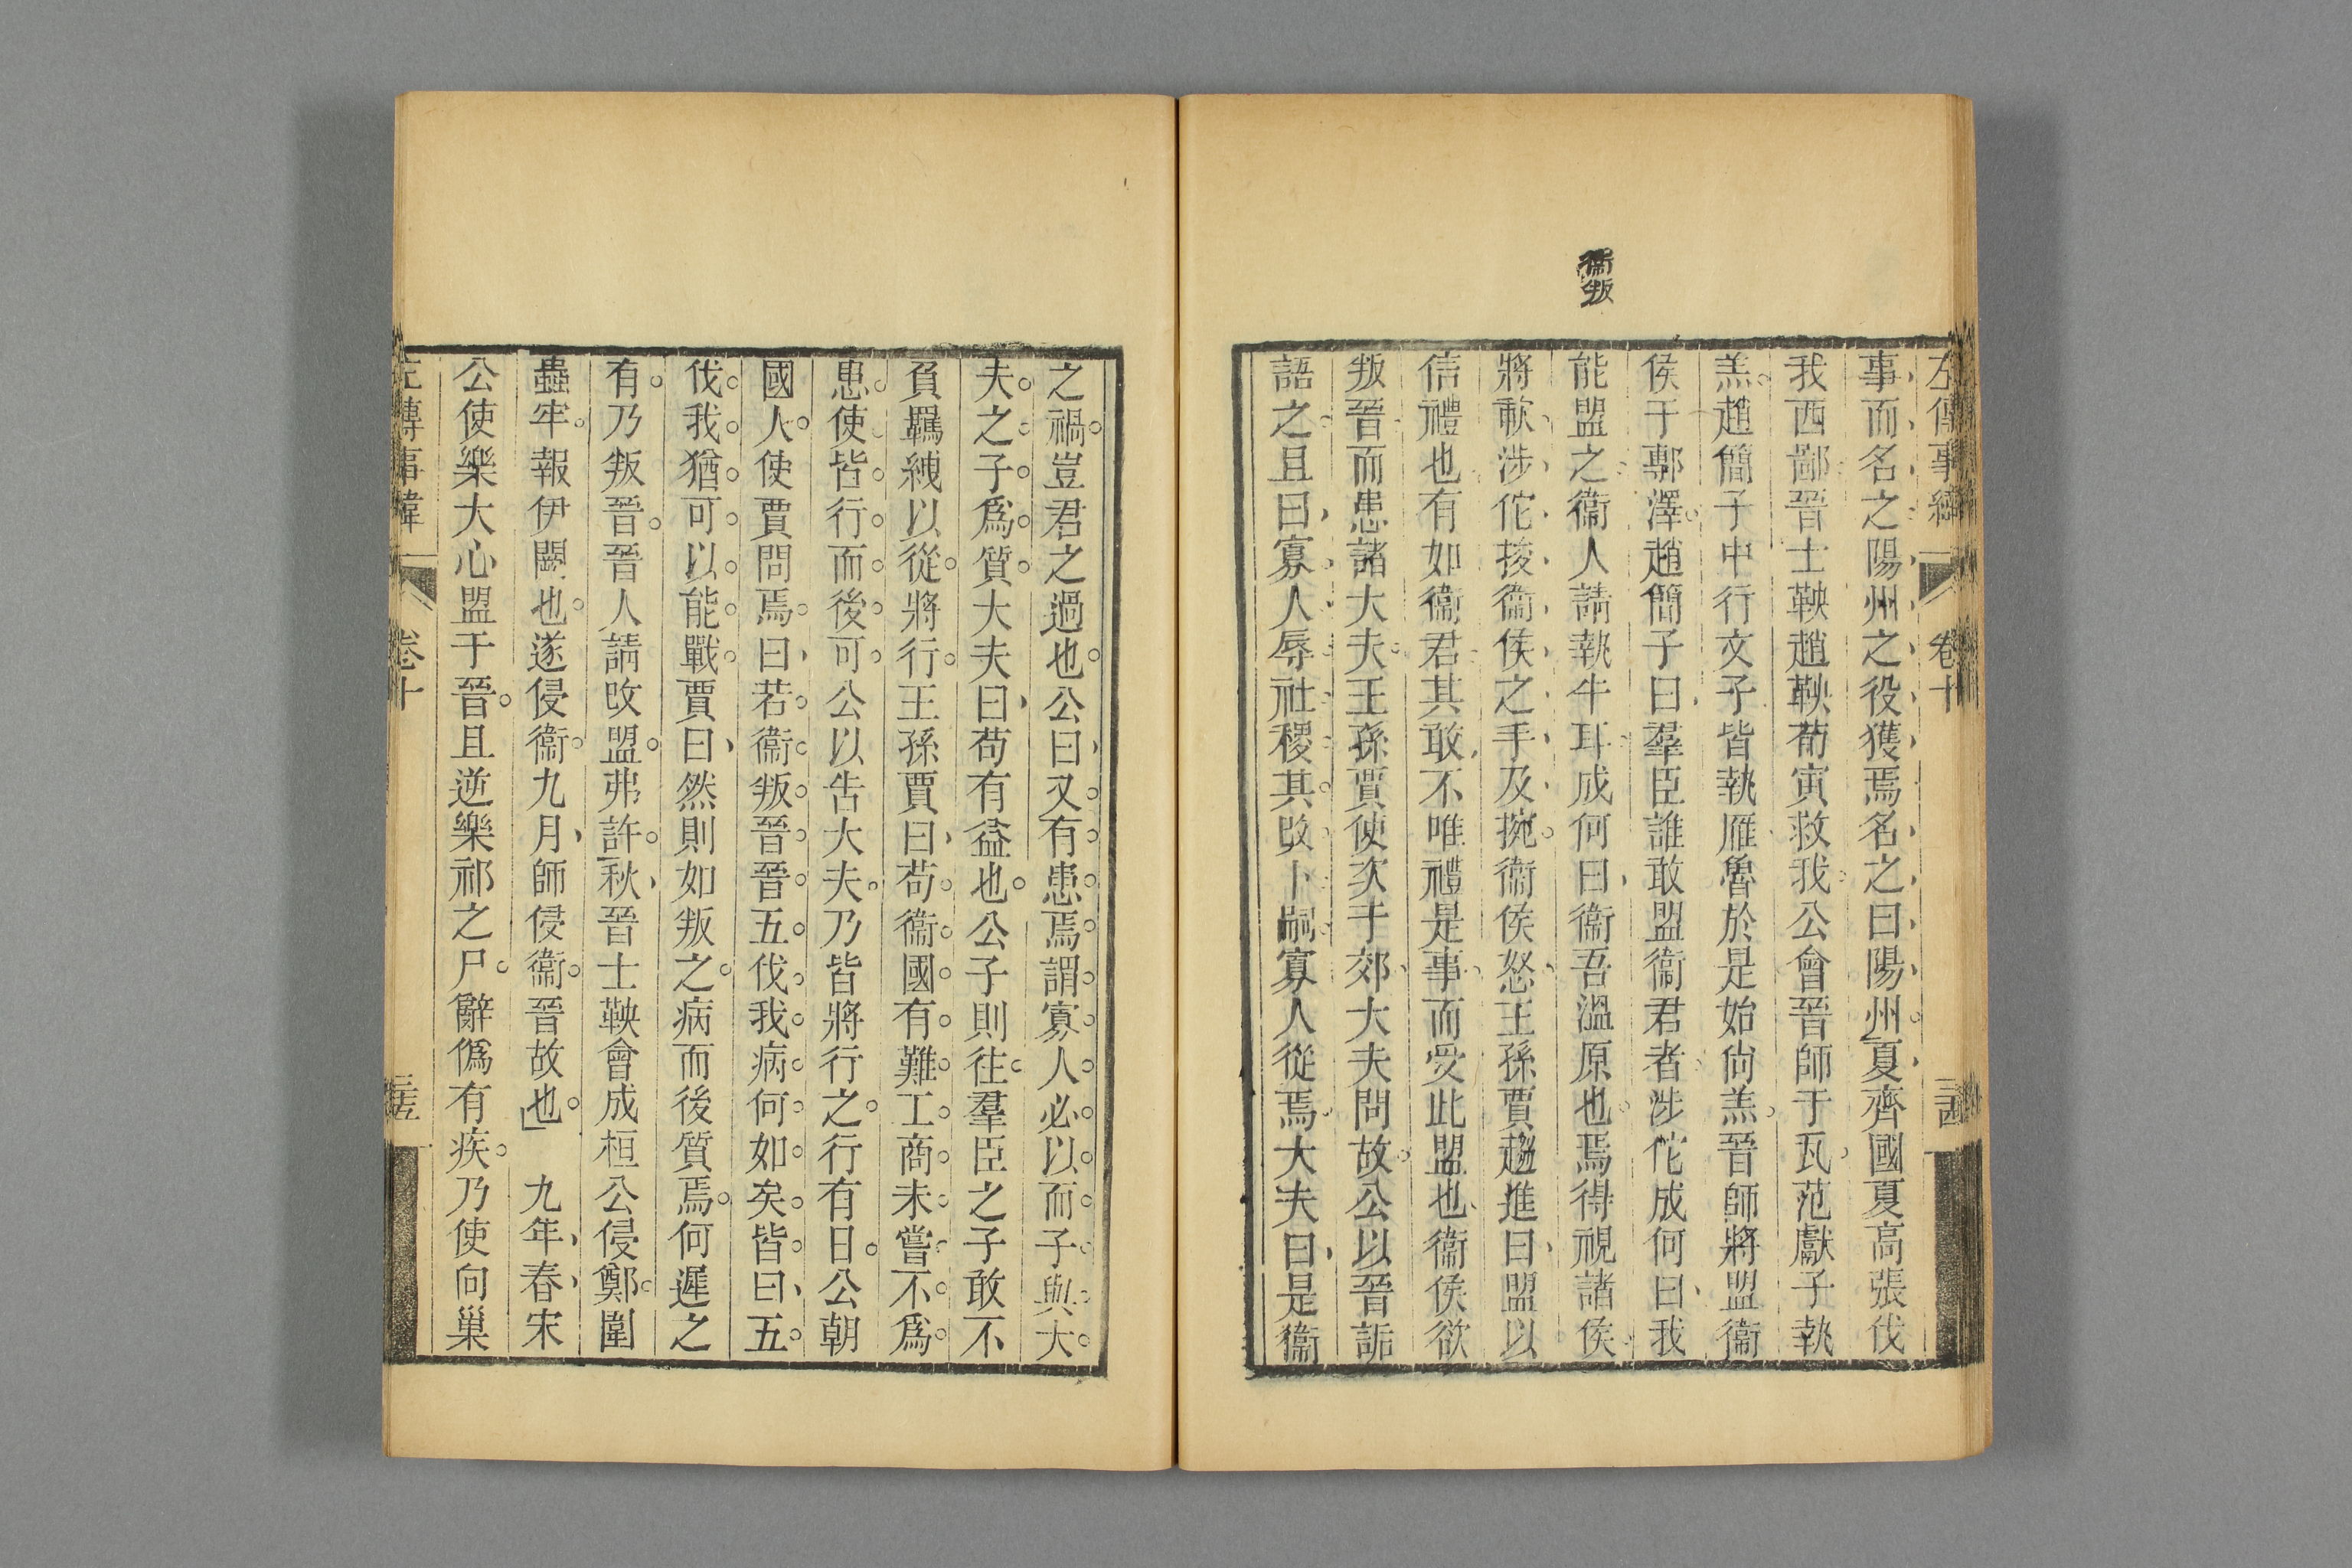 左傳事緯
卷十
衞叛
事而名之陽州之役獲焉名之曰陽州夏齊國夏高張伐
我西鄙晉士鞅趙鞅荀寅救我公會晉師于瓦范獻子執
羔趙簡子中行文子皆執雁魯於是始尙羔晉師將盟衞
侯于鄟澤趙簡子曰羣臣誰敢盟衞君者涉佗成何曰我
能盟之衞人請執牛耳成何曰衞吾溫原也焉得視諸侯
將歃涉佗捘衞侯之手及捥衞侯怒王孫賈趨進曰盟以
信禮也有如衞君其敢不唯禮是事而受此盟也衞侯欲
叛晉而患諸大夫王孫賈使次于郊大夫問故公以晉詬
語之且曰寡人辱社稷其改卜嗣寡人從焉大夫曰是衞
之禍豈君之過也公曰又有患焉謂寡人必以而子與大
夫之子爲質大夫曰苟有益也公子則往羣臣之子敢不
負羈絏以從將行王孫賈曰苟衞國有難工商未嘗不爲
患使皆行而後可公以告大夫乃皆將行之行有日公朝
國人使賈問焉曰若衞叛晉晉五伐我病何如矣皆曰五
伐我猶可以能戰賈曰然則如叛之病而後質焉何遲之
有乃叛晉晉人請改盟弗許秋晉士鞅會成桓公侵鄭圍
蟲牢報伊闕也遂侵衞九月師侵衞晉故也 九年春宋
公使樂大心盟于晉且逆樂祁之尸辭僞有疾乃使向巢
左傳事緯
卷十